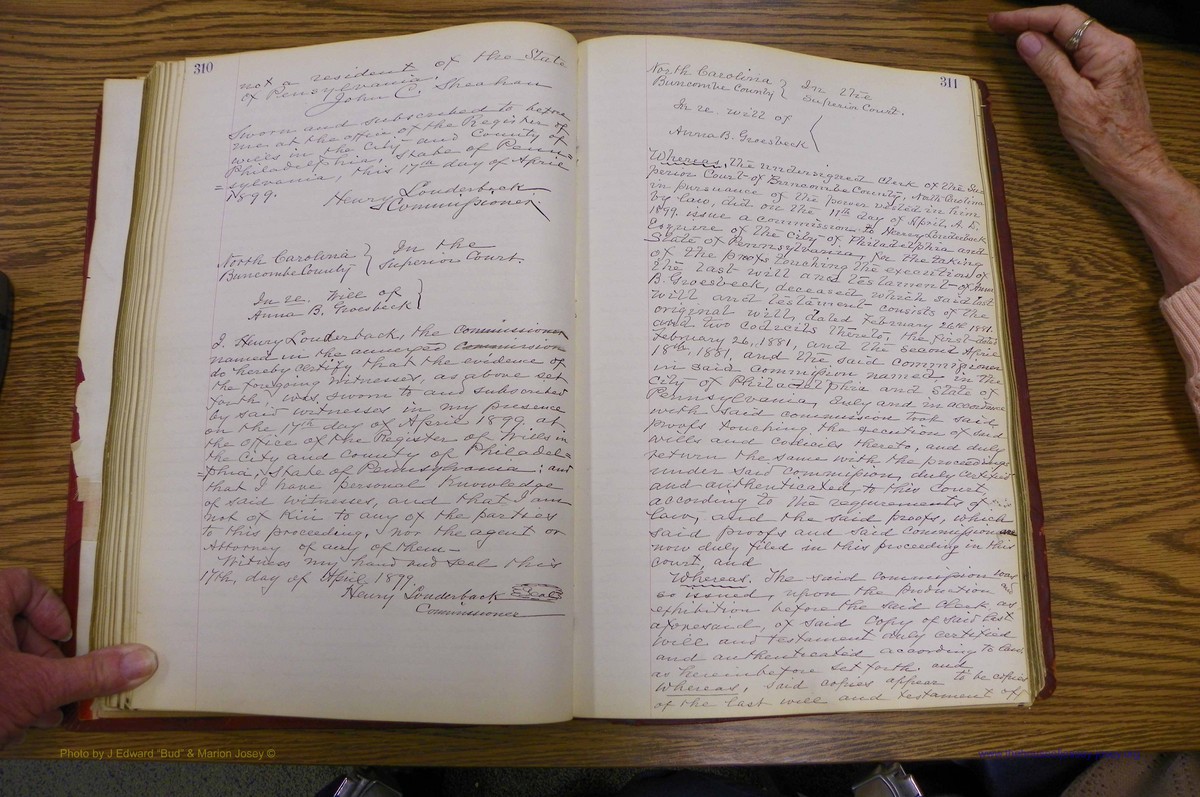 310
not a resident of the State
of Pensylvania.
John C. Sheahan
Sworn and subscribed to before
me at the office of the Register of
wills in the City and County of
Philadelphia, State of Penn=
=sylvania, this 17th day of April
1899.
Henry Louderback
Commissioner.
North Carolina } In the
Buncombe County } Superior Court.
In re. Will of }
Anna B. Groesbeck }
I. Henry Louderback, the Commissioner
named in the annexed Commission
do hereby certify that the evidence of
the foregoing witnesses, as above set
forth, was sworn to and subscribed
by said witnesses in my presence
on the 17th day of April 1899. at
the office of the Register of Wills in
the City and County of Philadel=
=phia, State of Pennsylvania; and
that I have personal knowledge
of said witnesses, and that I am
not of kin to any of the parties
to this proceeding, nor the agent or
Attorney of any of them-
Witness my hand and seal this
17th, day of April 1899.
Henry Louderback Seal
Commissioner
311
North Carolina } In the
Buncombe County } Superior Court.
In re. will of
Anna B. Groesbeck
Whereas, the undersigned clerk of the Su-
perior Court of Buncombe County, North Carolina
in pursuance of the power vested in him
by law, did on the 11th day of April, A.D.
1899. issue a commission to Henry Louderback
Esquire of the City of Philadelphia and
State of Pennsylvania, for the taking
of the proofs touching the execution of
the last will and testament of Anna
B. Groesbeck, deceased, which said last
will and testament consists of the
original will, dated February 26th 1881.
and two codicils thereto, the first dated
February 26, 1881, and the second April
18th, 1881, and the said commissioner
in said commission named in the
City of Philadelphia and State of
Pennsylvania, duly and in accordance
with said commission took said
proofs touching the execution of said
wills and codicils thereto, and duly
return the same with the proceedings
under said commission, duly certified
and authenticated, to this Court,
according to the requirements of
law, and the said proofs, which
said proofs and said commission are
now duly filed in this proceeding in this
court, and
Whereas. The said commission was
so issued, upon the production and
exhibition before the said Clerk, as
aforesaid, of said copy of said last
will and testament duly certified
and authenticated according to law,
as hereinbefore set forth. and
whereas, said copies appear to be copies
of the last will and testament of
Photo by J Edward "Bud" & Marion Josey ©